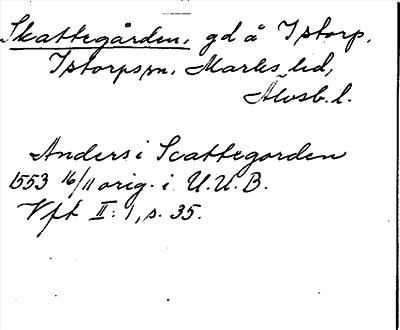 Skattegården, gd å Istorp,
Istorps sn, Marks hd,
Älvsb. l.
Anders i Scattegorden
1553 16/11 orig. i U.U.B.
Vft II: 1, s. 35.